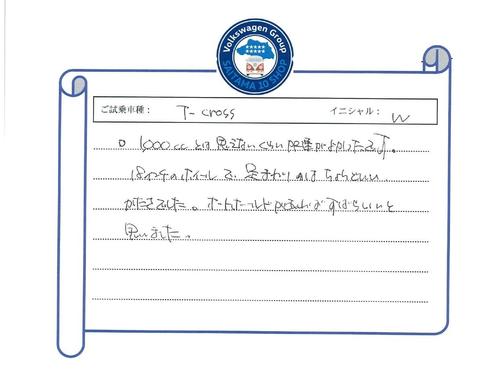 Volkswagen Group
SAITAMA 10 SHOP
ご試乗車種： T-cross イニシャル： W
○ 1,000ccとは思えないくらい が よかったです。
18インチのホイールで、足まわりのは ちょうどいい
かたさでした。オートホールド が すばらしいと
思いました。